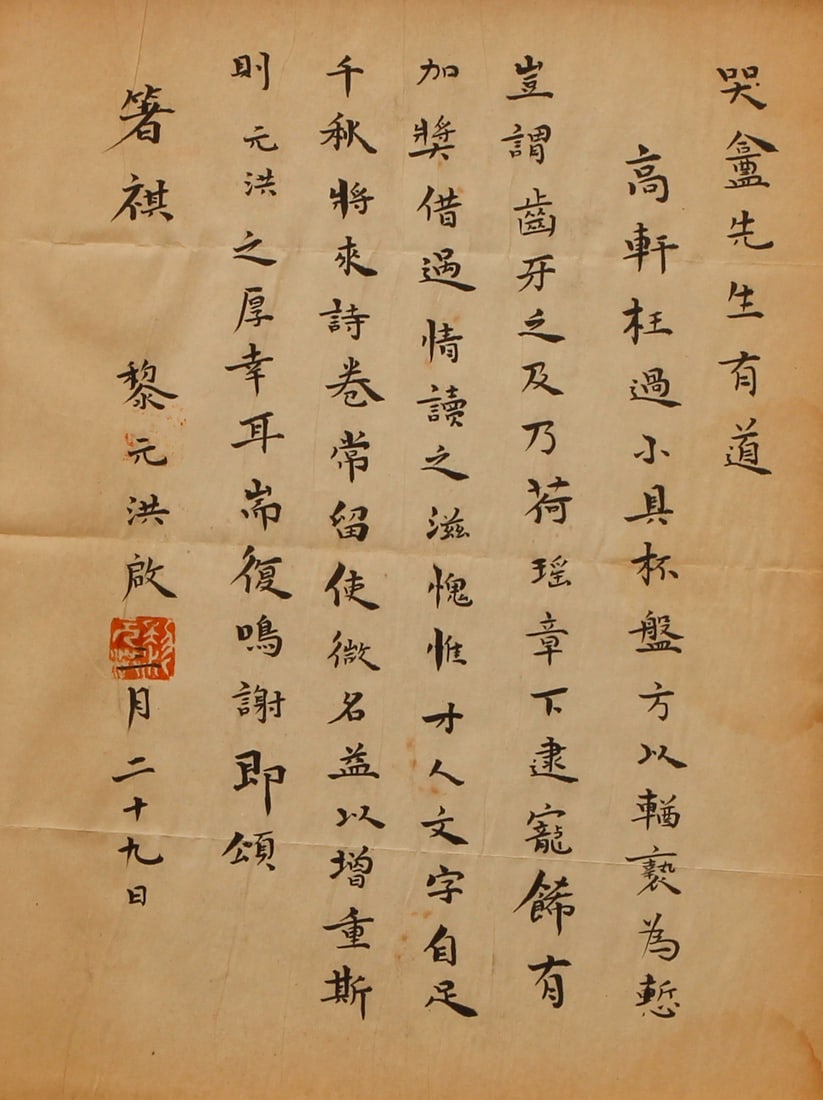 哭盦先生有道
高軒枉過小具杯盤方以輶褻為慙
豈謂齒牙之及乃荷瑤章下逮寵餙有
加獎借過情讀之滋愧惟才人文字自足
千秋將來詩卷常留使微名益以增重斯
則元洪之厚幸耳耑復鳴謝即頌
箸祺 黎元洪啟 三月二十九日